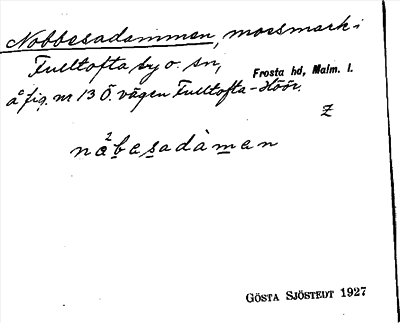 Nobbesadammen, mossmark i
Fulltofta by o. sn,
Frosta hd, Malm. l.
å fig. nr 13 Ö. vägen Fulltofta-Höör.
Z
2
nåbesadàmen
GÖSTA SJÖSTEDT 1927